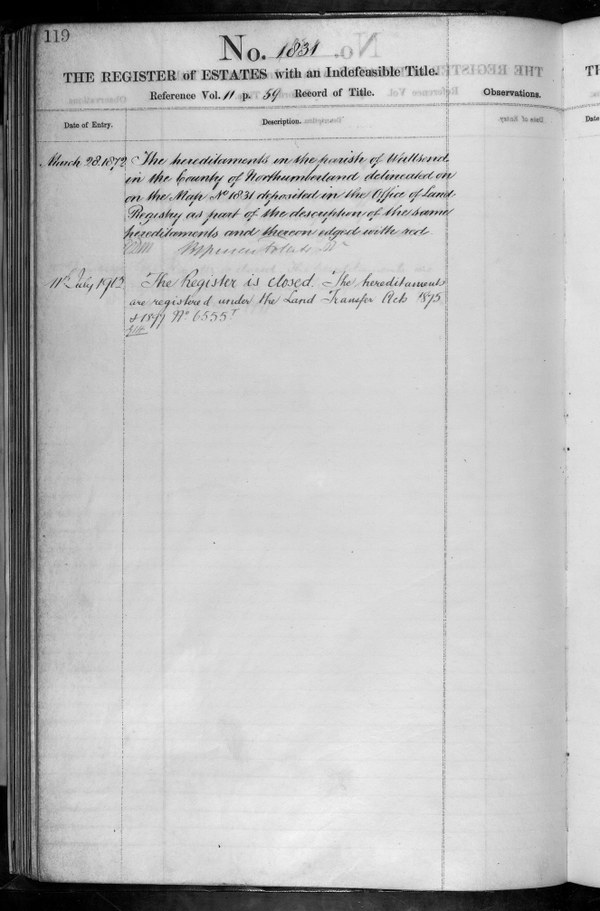 119
No. 1831
THE REGISTER of ESTATES with an Indefeasible Title.
Reference Vol. 11 p. 59 Record of Title.
Observations.
Date of Entry.
Description.
March 28. 1872
The hereditaments in the parish of Wallsend
in the County of Northumberland delineated on
on the Map No 1831 deposited in the Office of Land
Registry as part of the description of the same
hereditaments and thereon edged with red
11th July 1912
The Register is closed. The hereditaments
are registered under the Land Transfer Acts 1875
& 1897 No 6555
TH
Date